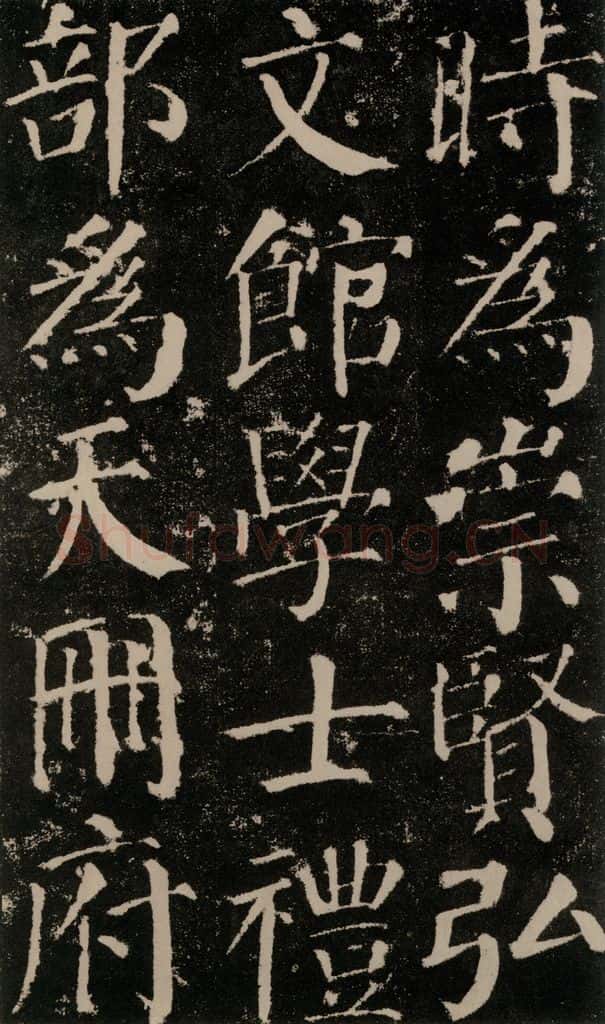 時為崇賢弘
文館學士禮
部為天冊府
Shufawang.CN